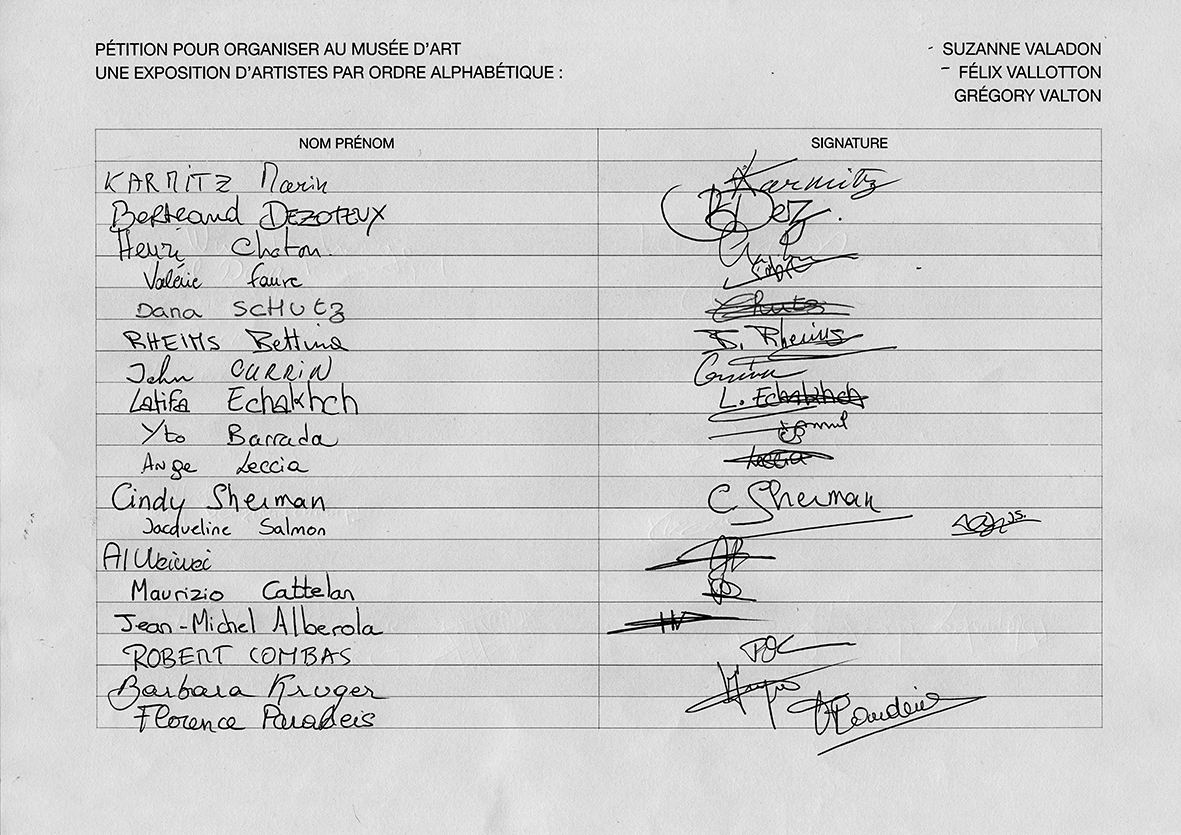 PÉTITION POUR ORGANISER AU MUSÉE D'ART
UNE EXPOSITION D'ARTISTES PAR ORDRE ALPHABÉTIQUE :
- SUZANNE VALADON
- FÉLIX VALLOTTON
GRÉGORY VALTON
NOM PRÉNOM SIGNATURE
KARMITZ Marin Karmitz
Bertrand DEZOTEUX BDez.
Henri Chaton.
Valérie faure
Dana SCHUtz Shutz
RHEIMS Bettina B. Rheims
John CURRIN
Latifa Echakhch L. Echakhch
Yto Barrada
Ange Leccia Leccia
Cindy Sherman C Sherman
Jacqueline Salmon
AI Weiwei
Maurizio Cattelan
Jean-Michel Alberola
ROBERT COMBAS
Barbara Kruger
Florence Paradeis